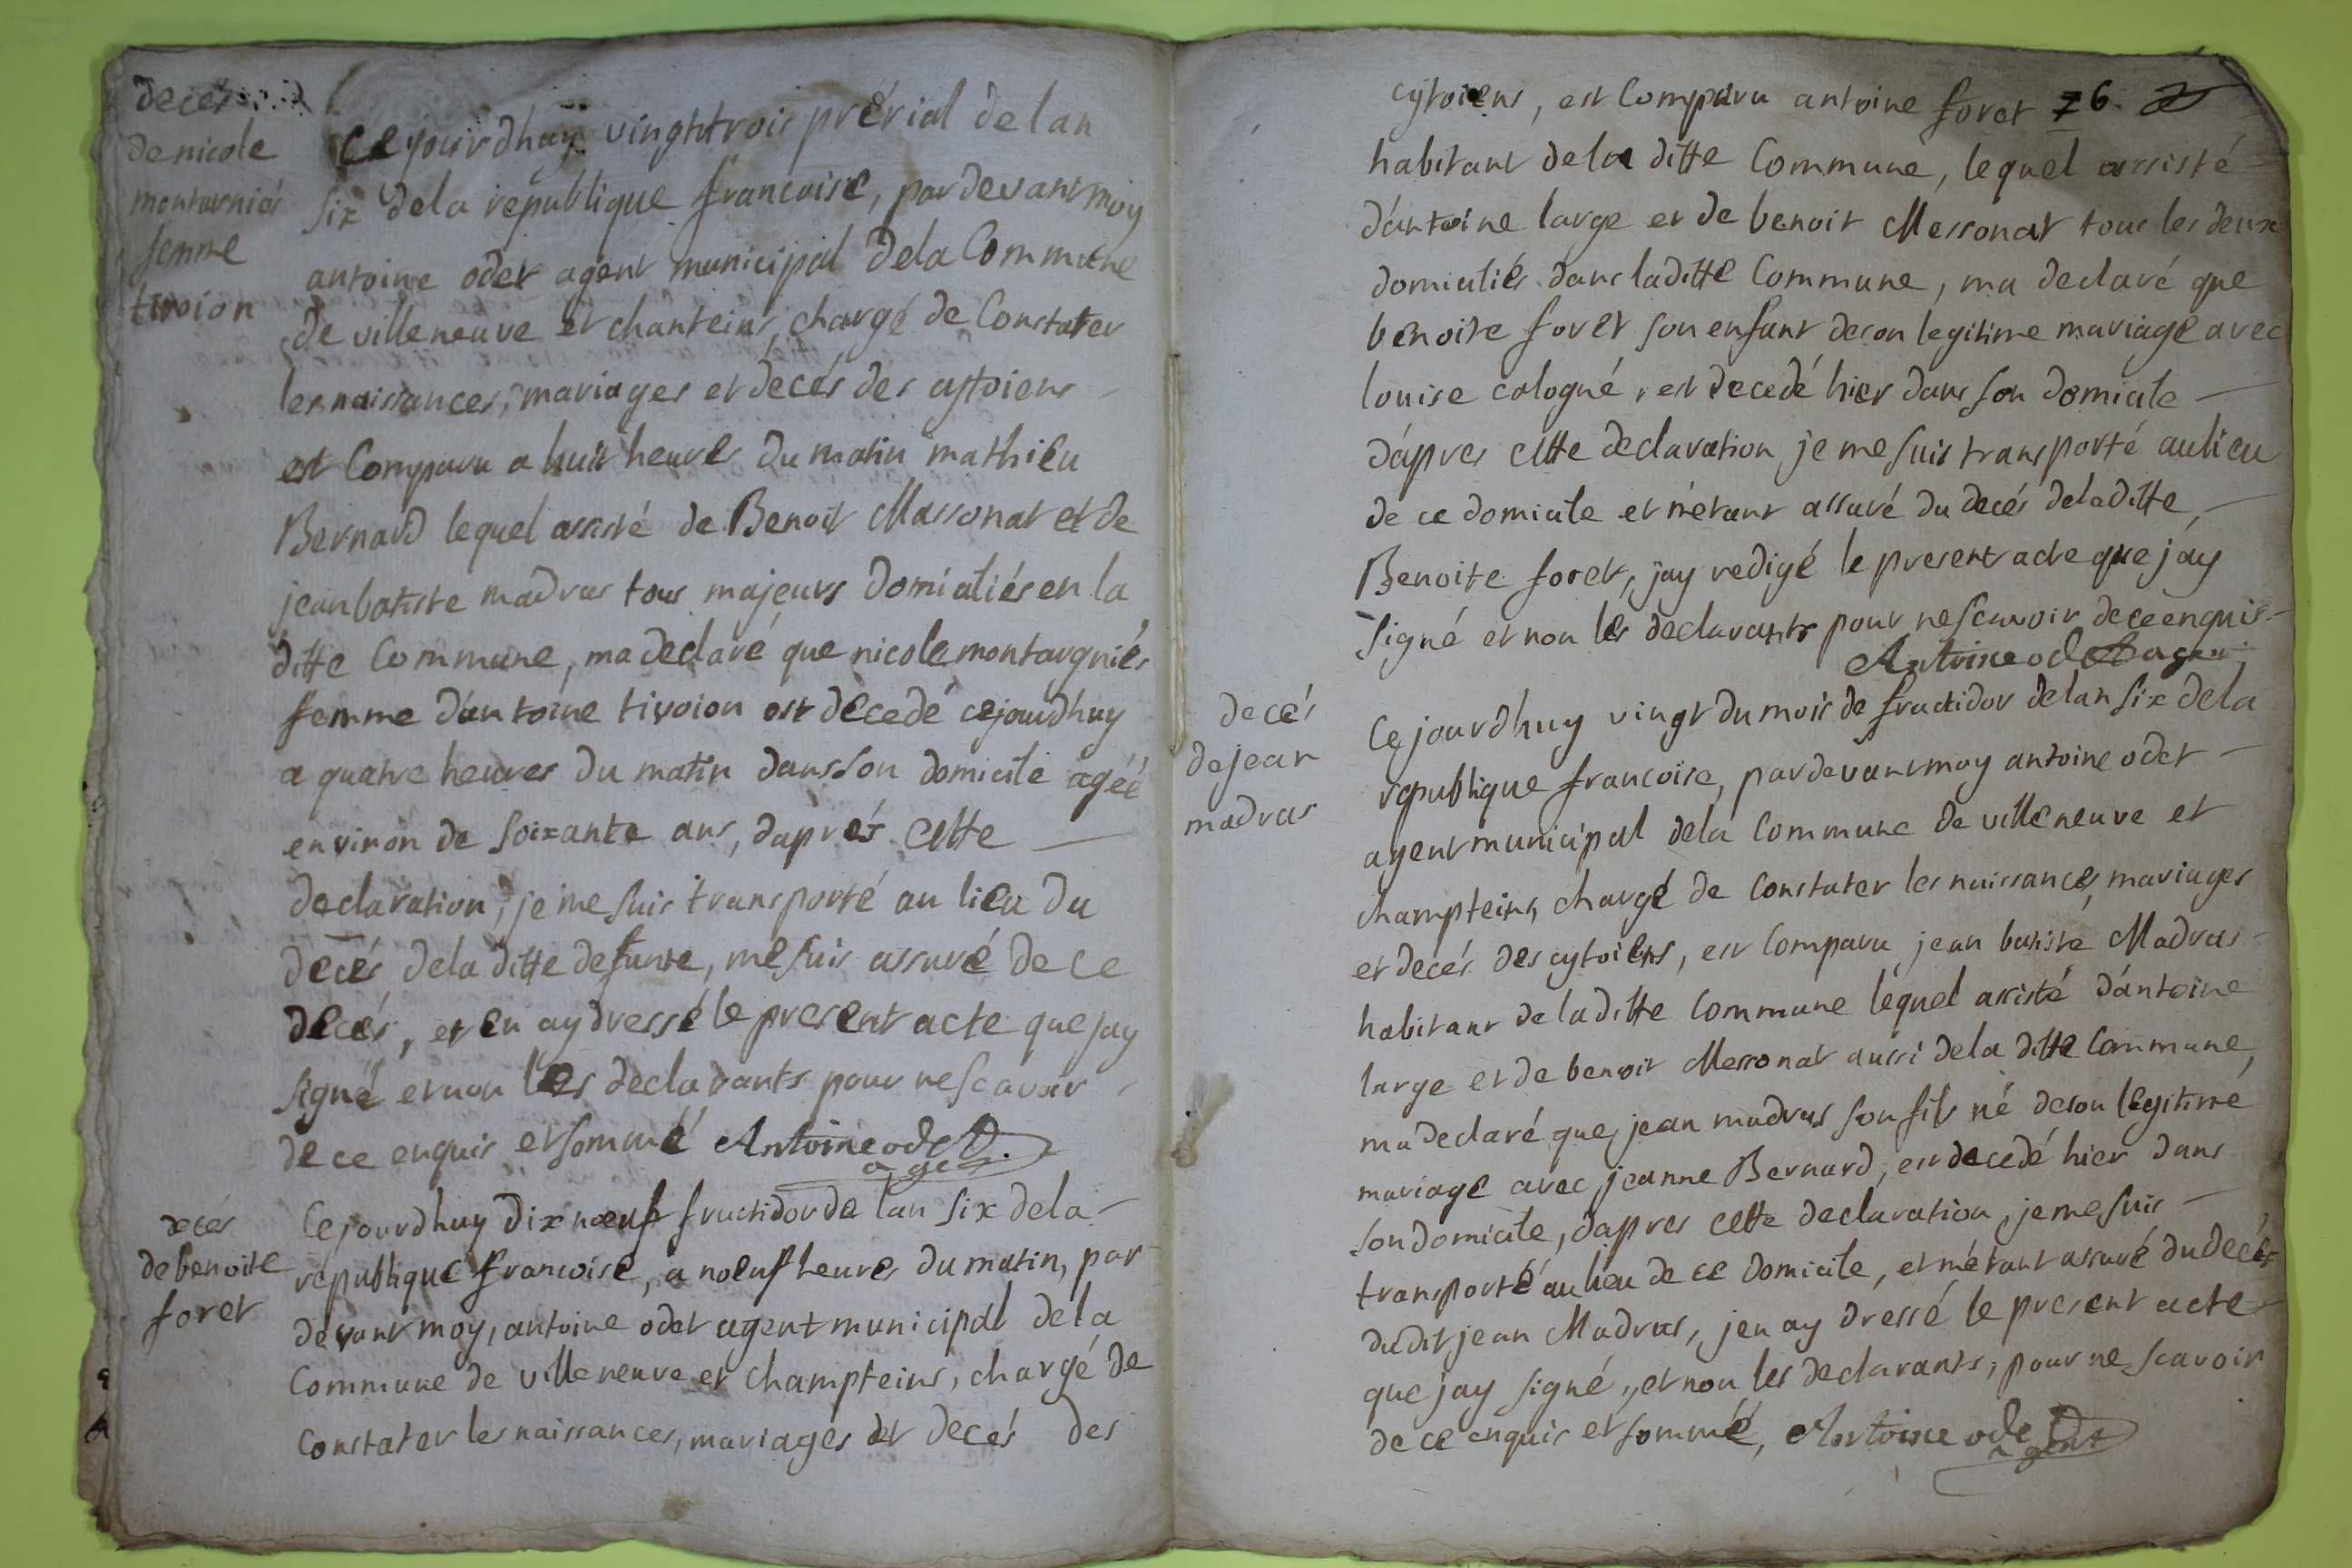 deces
de nicole
montarniés
femme
tivoion
Ce jourdhuy vingttrois prérial de lan
six de la republique francoise, pardevant moy
antoine odet agent municipal de la Commune
de villeneuve et chanteins, chargé de Constater
les naissances, mariages et décés des cytoiens
est Comparu a huit heures du matin mathieu
Bernard lequel assisté de Benoit Massonat et de
jean batiste madras tous majeurs domiciliés en la
ditte Commune, ma declaré que nicole montargniés
femme dantoine tivoion est décedé cejourdhuy
a quatre heures du matin dans son domicile agéé
environ de soixante ans, daprés cette
declaration, je me suis transporté au lieu du
décés de la ditte defunte, me suis assuré de ce
décés, et en ay dressé le present acte que jay
signé et non les declarants pour ne scavoir
de ce enquis et sommé Antoine odet
agent
deces
de benoite
foret
Ce jourdhuy dix nœuf fructidor de lan six de la
republique francoise, a nœuf heures du matin, par
devant moy, antoine odet agent municipal de la
Commune de villeneuve et champteins, chargé de
Constater les naissances, mariages et decés des
cytoiens, est Comparu antoine foret 76
habitant de la ditte Commune, lequel assisté
dantoine large et de benoit Messonat tous les deux
domiciliés dans laditte Commune, ma declaré que
benoite foret son enfant de son legitime mariage avec
louise cologné, est decedé hier dans son domicile
dapres cette declaration je me suis transporté au lieu
de ce domicile et métant assuré du decés de laditte
Benoite foret, jay redigé le present acte que jay
signé et non les declarants pour ne scavoir de ce enquis
Antoine odet agent
decés
de jean
madras
Ce jourdhuy vingt du mois de fructidor de lan six de la
republique francoise, pardevant moy antoine odet
agent municipal de la Commune de villeneuve et
champteins, chargé de Constater les naissances, mariages
et decés des cytoiens, est Comparu jean batiste Madras
habitant de laditte Commune lequel assisté dantoine
large et de benoit Messonat aussi de la ditte Commune,
ma declaré que jean madras son fils né de son legitime
mariage avec jeanne Bernard, est decedé hier dans
son domicile, dapres cette declaration, je me suis
transporté au lieu de ce domicile, et métant assuré du decés
dudit jean Madras, jen ay dressé le present acte
que jay signé, et non les declarants, pour ne scavoir
de ce enquis et sommé, Antoine odet
agent